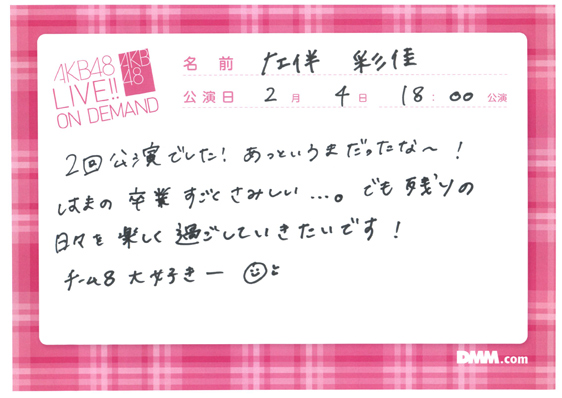 AKB48
LIVE!!
ON DEMAND
AKB
48
名前 左伴 彩佳
公演日 2月 4日 18:00 公演
2回公演でした!あっというまだったな〜!
はまの卒業すごくさみしい…。でも残りの
日々を楽しく過ごしていきたいです!
チーム8大好きー
DMM.com